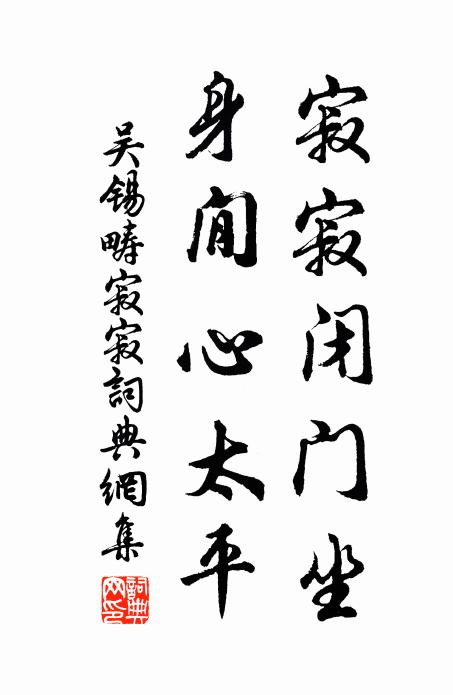 寂寂闭门坐
身闲心太平
吴锡畴寂寂詞典網集
詞典網印